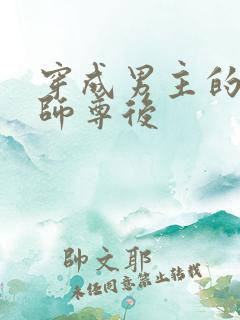 穿成男主的
師尊後
帥文耶
未经同意禁止转载